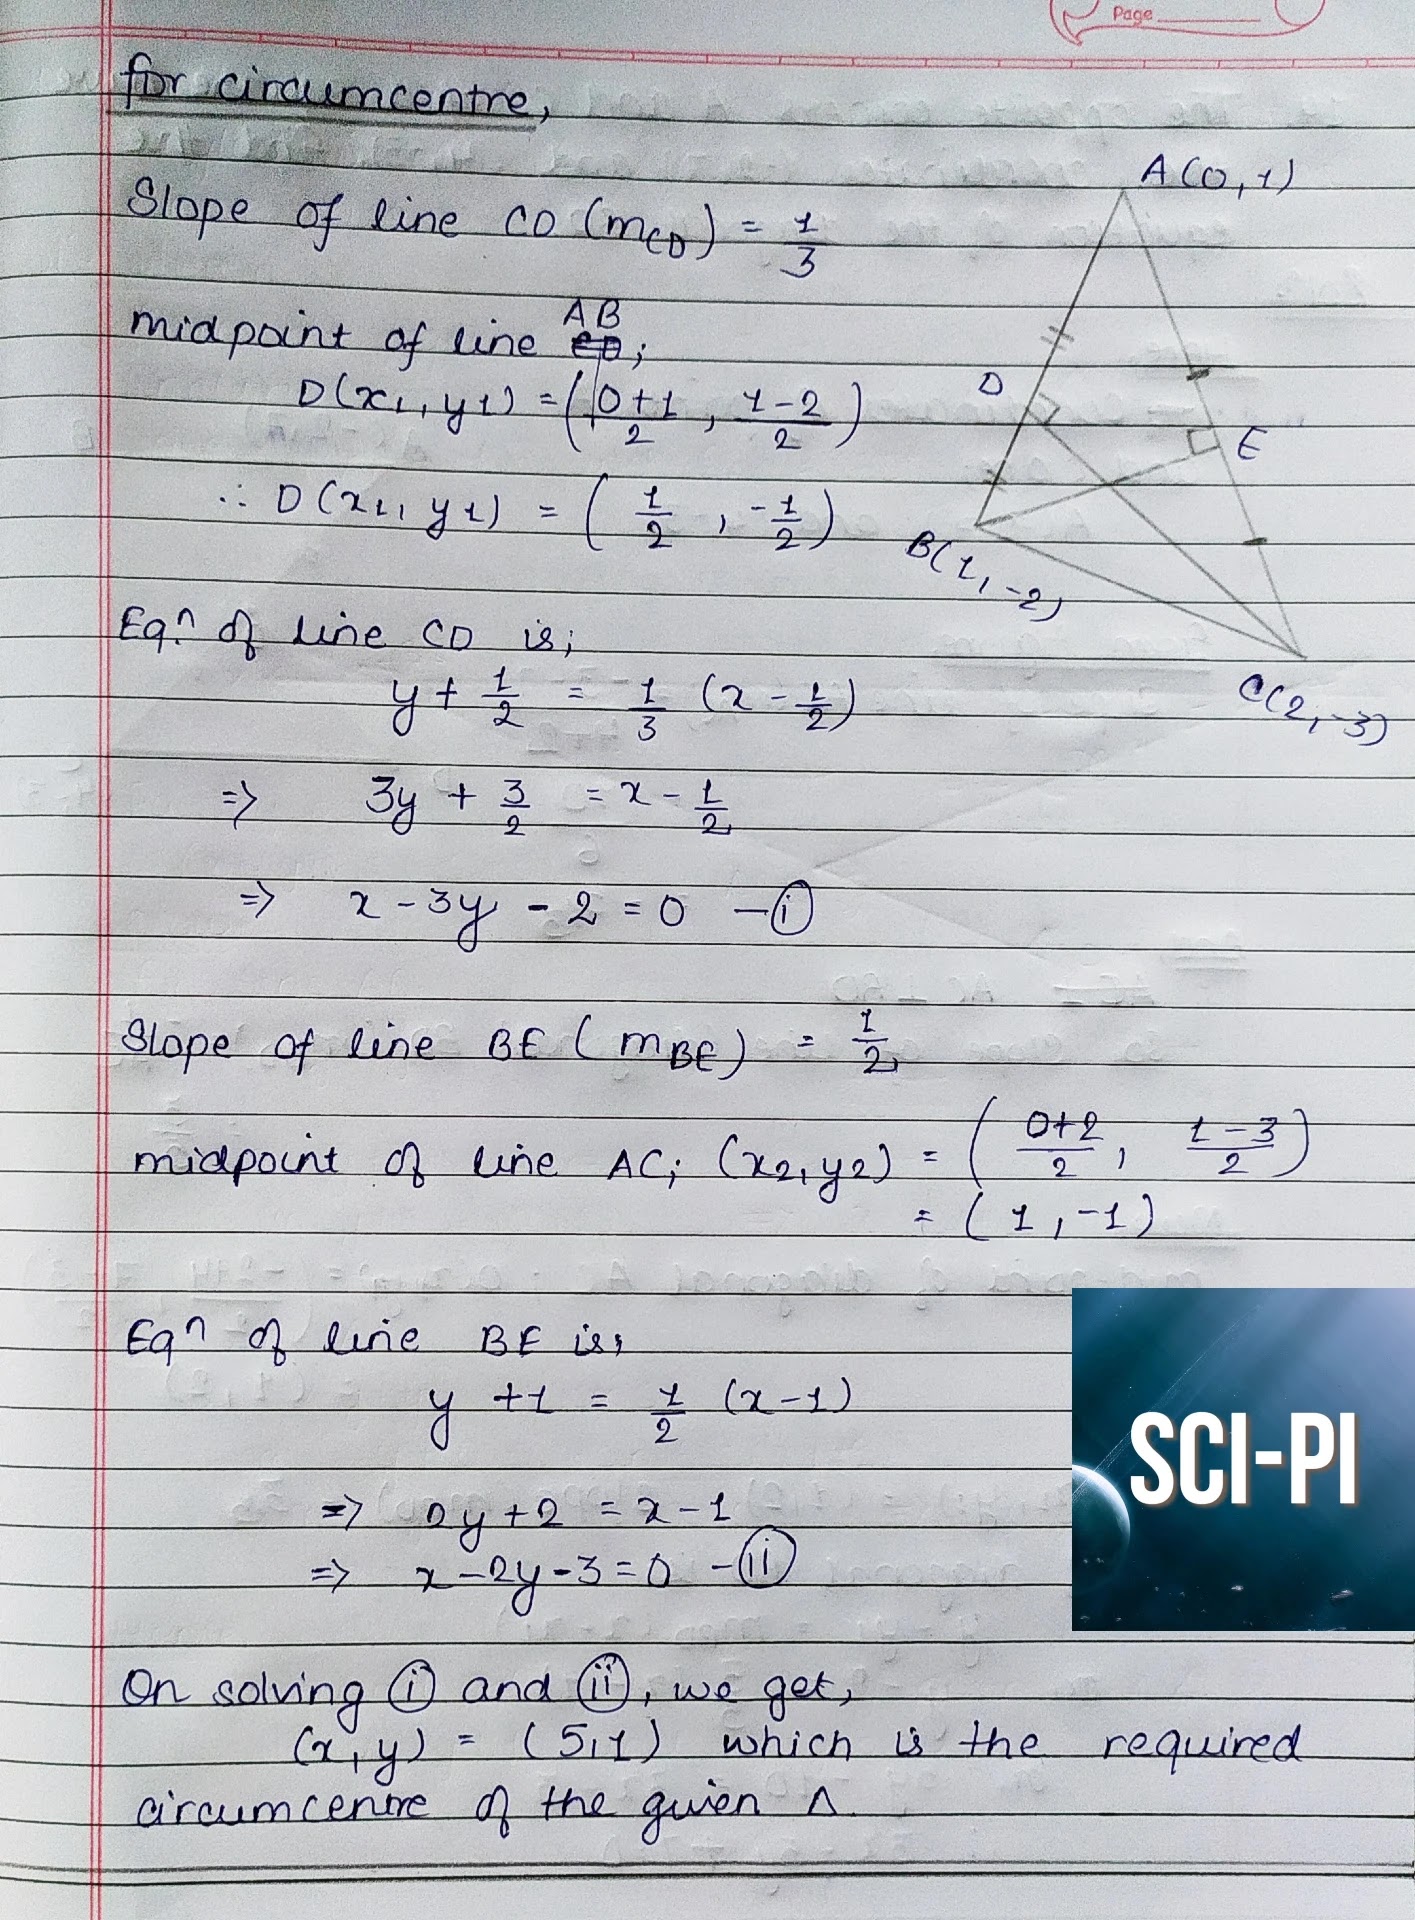 Page
for circumcentre,
Slope of line CD (mCD) = 1/3
A(0,1)
midpoint of line AB;
D(x1, y1) = (0+1/2, 1-2/2)
D
E
∴ D(x1, y1) = (1/2, -1/2)
B(1,-2)
Eqn. of line CD is;
C(2,-3)
y + 1/2 = 1/3 (x - 1/2)
=> 3y + 3/2 = x - 1/2
=> x - 3y - 2 = 0 - (i)
Slope of line BE (mBE) = 1/2
midpoint of line AC; (x2, y2) = (0+2/2, 1-3/2)
= (1, -1)
Eqn of line BE is;
y + 1 = 1/2 (x-1)
=> 2y + 2 = x - 1
=> x - 2y - 3 = 0 - (ii)
SCI-PI
On solving (i) and (ii), we get,
(x, y) = (5,1) which is the required
circumcentre of the given Δ.